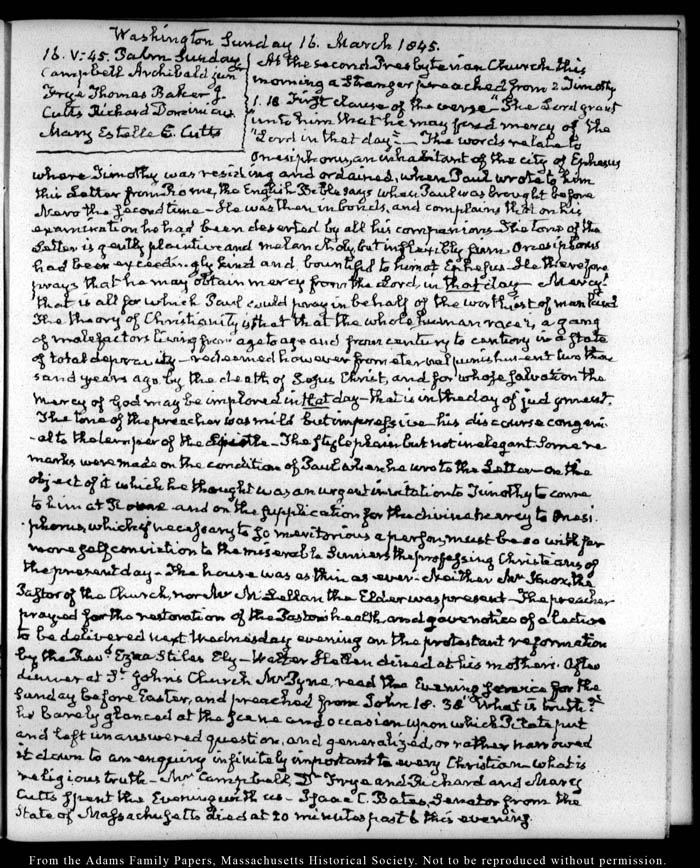 Washington Sunday 16. March 1845.
16. V:45. Palm Sunday
Campbell Archibald jun
Frye Thomas Baker J.
Cutts Richard Dominicus
Mary Estelle E. Cutts
At the second Presbyterian Church this
morning a Stranger preached from 2 Timothy
1. 18 First clause of the verse "The Lord grant
"unto him that he may find mercy of the
"Lord in that day" — The words relate to
Onesiphorus, an inhabitant of the city of Ephesus
where Timothy was residing and ordained, when Paul wrote to him
this Letter from Rome, the English Bible says when Paul was brought before
Nero the second time — He was then in bonds, and complains that on his
examination he had been deserted by all his companions. The tone of the
Letter is gently plaintive and melancholy, but inflexibly firm. Onesiphorus
had been exceedingly kind and bountiful to him at Ephesus — He therefore
prays that he may obtain mercy from the Lord, in that day — Mercy!
that is all for which Paul could pray in behalf of the worthiest of mankind
The theory of Christianity is that that the whole human race is, a gang
of malefactors living from age to age and from century to century in a state
of total depravity — redeemed however from eternal punishment two thou
sand years ago by the death of Jesus Christ, and for whose salvation the
mercy of God may be implored in that day — that is in the day of judgment.
The tone of the preacher was mild but impressive — his discourse congeni
-al to the temper of the Epistle — The style plain but not inelegant. Some re
marks were made on the condition of Paul when he wrote the Letter — on the
object of it which he thought was an urgent invitation to Timothy to come
to him at Rome and on the supplication for the divine mercy to Onesi
-phorus, which if necessary to so meritorious a person, must be so with far
more self conviction to the miserable Sinners the professing Christians of
the present day — The house was as thin as ever — Neither Mr Knox, the
Pastor of the Church, nor Mr McLellan the Elder was present — The preacher
prayed for the restoration of the Pastor's health, and gave notice of a lecture
to be delivered next Wednesday evening on the protestant reformation
by the Revd Ezra Stiles Ely — Walter Hellen dined at his mother's. After
dinner at St. John's Church Mr Pyne, read the Evening service for the
Sunday before Easter, and preached from John 18. 38 "What is truth?"
he barely glanced at the scene and occasion upon which Pilate put
and left unanswered question, and generalized or rather narrowed
it down to an enquiry infinitely important to every Christian — what is
religious truth — Mr Campbell, Dr Frye and Richard and Mary
Cutts spent the Evening with us — Isaac C. Bates, Senator from the
State of Massachusetts died at 20 minutes past 6 this evening.
From the Adams Family Papers, Massachusetts Historical Society. Not to be reproduced without permission.